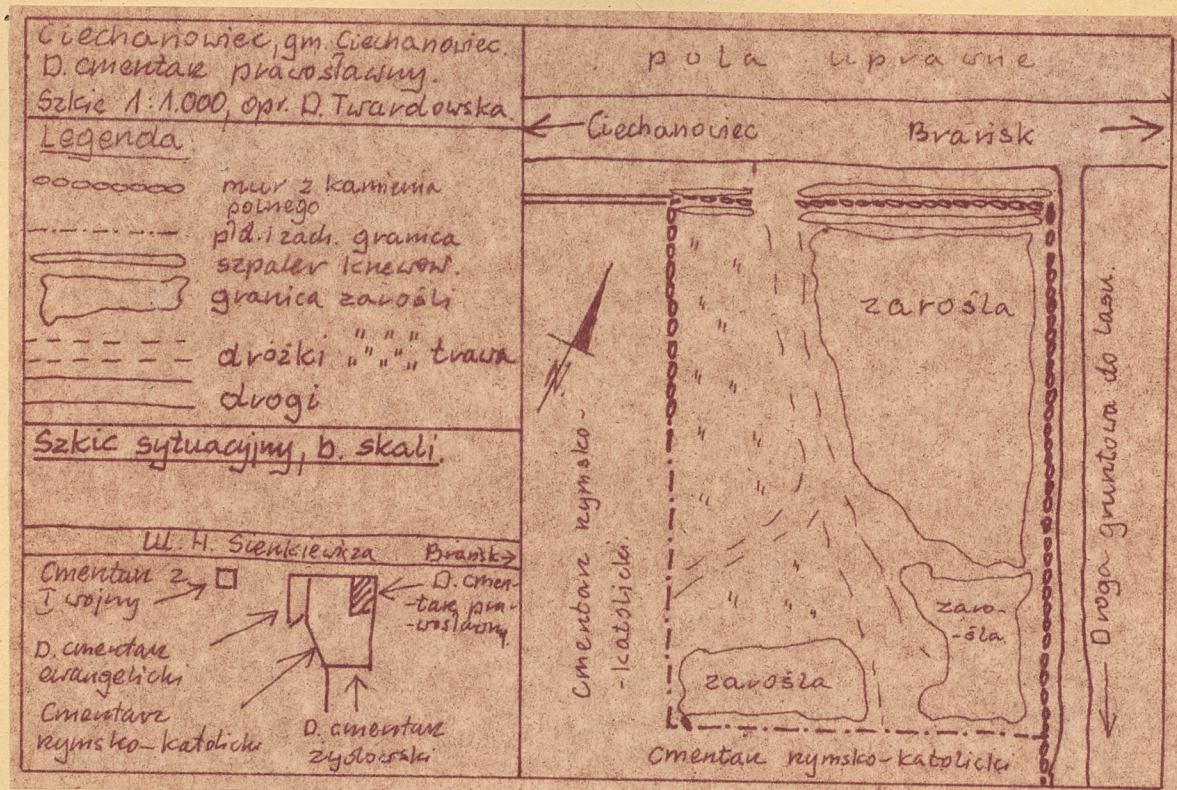 Ciechanowiec, gm. Ciechanowiec.
D. cmentarz prawosławny.
Szkic 1:1.000, opr. D. Twardowska.
Legenda.
mur z kamienia
polnego
płd. i zach. granica
szpaler krzewów.
granica zarośli
dróżki
trawa
drogi
Szkic sytuacyjny, b. skali.
Ul. H. Sienkiewicza
Brańsk
Cmentarz z
I wojny
D. cmen-
-tarz pra-
-wosławny
D. cmentarz
ewangelicki
Cmentarz
rzymsko-katolicki
D. cmentarz
żydowski
pola uprawne
Ciechanowiec
Brańsk
zarośla
N
Cmentarz rzymsko-
-katolicki.
Droga gruntowa do lasu.
zaro-
-śla
zarośla
Cmentarz rzymsko-katolicki